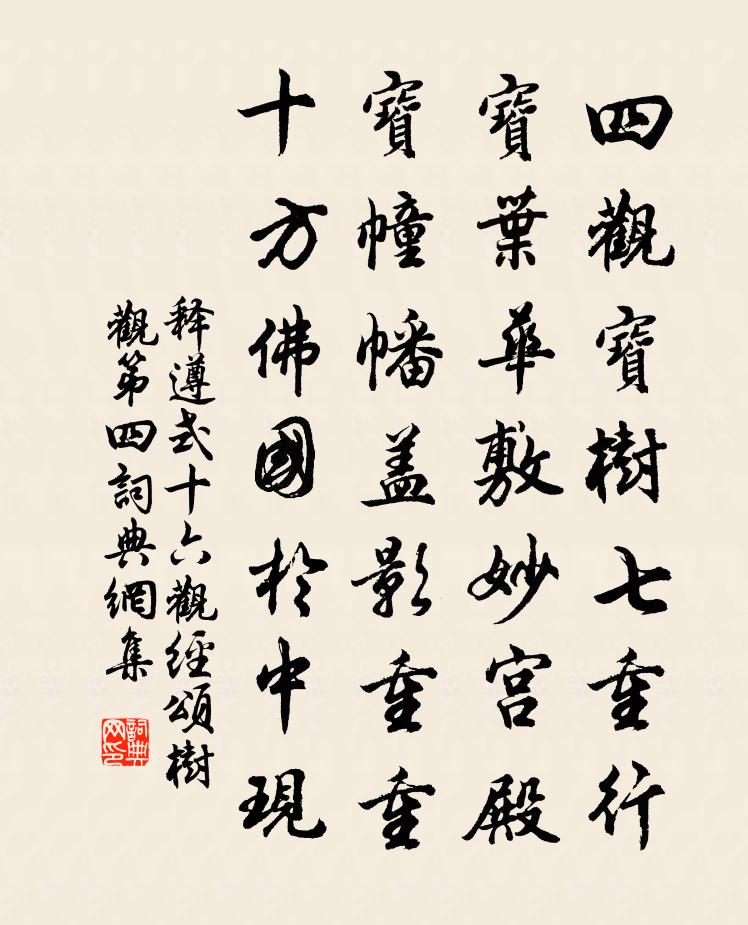 四觀寶樹七重行
寶葉華敷妙宮殿
寶幢幡盖影重重
十方佛國於中現
释遵式十六觀經頌樹
觀第四詞典網集
詞典
网印